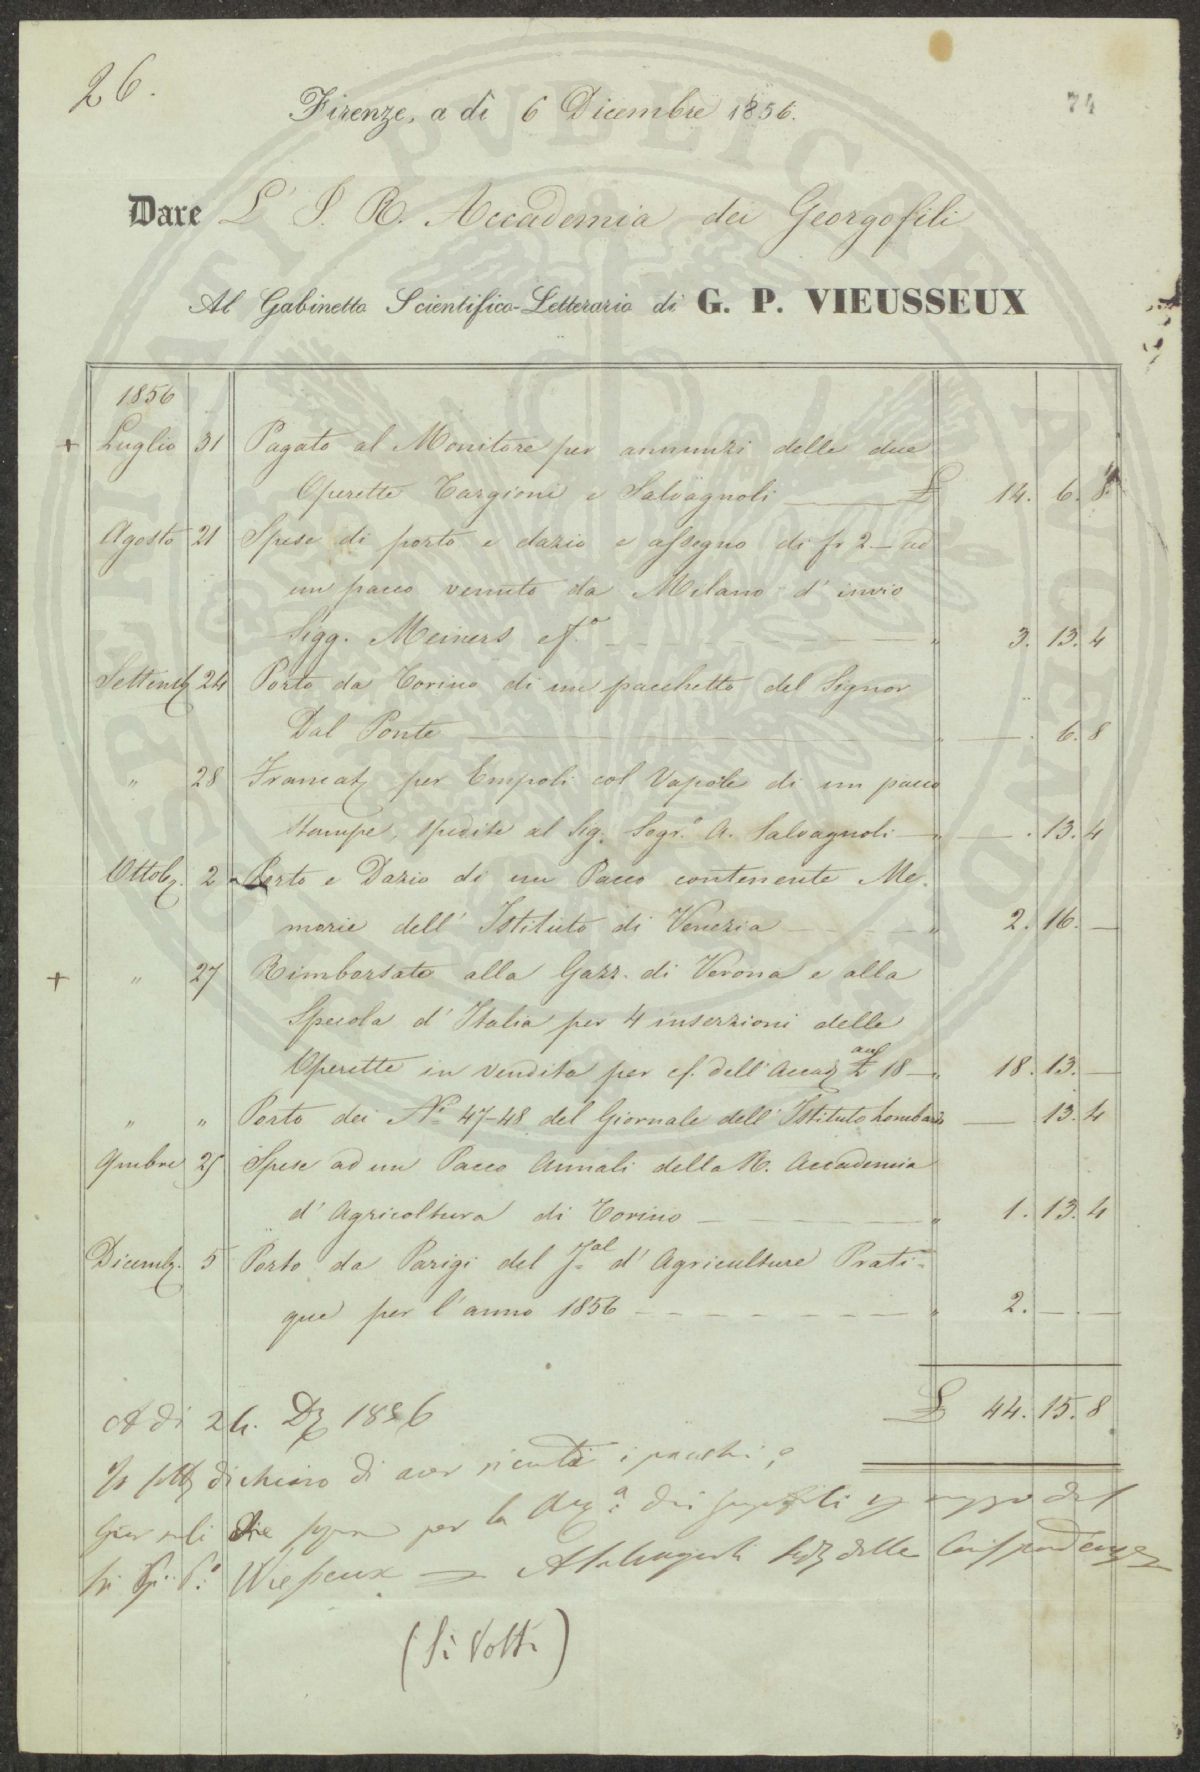 26.
74
Firenze, a dì 6 Dicembre 1856.
Dare L' I. R. Accademia dei Georgofili
Al Gabinetto Scientifico-Letterario di G. P. VIEUSSEUX
1856
+ Luglio 31 Pagato al Monitore per annunzi delle due
Operette Targioni e Salvagnoli £ 14. 6. 8
Agosto 21 Spese di porto e dazio e assegno di fr 2 - ad
un pacco venuto da Milano d' invio
Sigg. Meiners e f.o " 3. 13. 4
Settembr 24 Porto da Torino di un pacchetto del Signor
Dal Ponte " — . 6. 8
" 28 Francat per Empoli col Vapore di un pacco
stampe, spedite al Sig. Segr.o A. Salvagnoli " — . 13. 4
Ottob. 2 Porto e Dazio di un Pacco contenente Me-
morie dell' Istituto di Venezia " 2. 16. —
+ " 27 Rimborsato alla Gazz. di Verona e alla
Specola d' Italia per 4 inserzioni delle
Operette in vendita per c/. dell' Accad £ 18 — " 18. 13. —
" " Porto dei N.i 47-48 del Giornale dell' Istituto Lombardo — . 13. 4
9mbre 25 Spese ad un Pacco Annali della R. Accademia
d' Agricoltura di Torino " 1. 13. 4
Dicemb. 5 Porto da Parigi del J.al d' Agriculture Prati-
que per l' anno 1856 " 2. — . —
£ 44. 15. 8
A dì 24. D 1856
Io dichiaro di aver ricevuti i pacchi, e
Giornali che sopra per la dei Georgofili mezzo del
Vieusseux = A Salvagnoli delle Corrispondenze
(Si Volti)